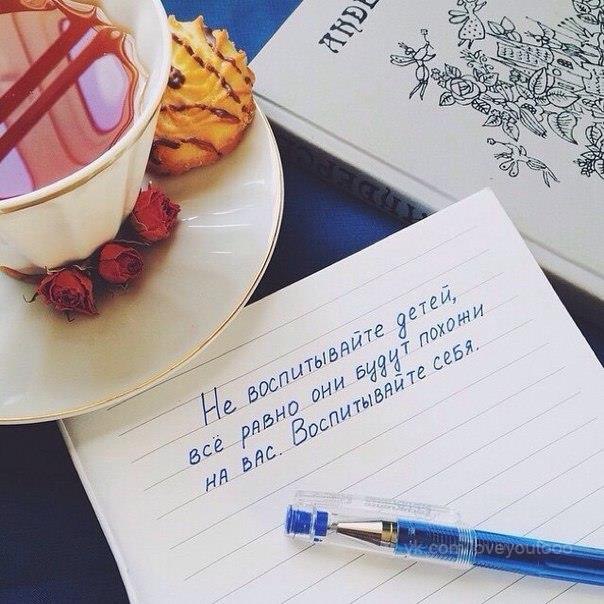 АНДЕ
Не воспитывайте детей,
всё равно они будут похожи
на вас. Воспитывайте себя.
vk.com/loveyoutooo